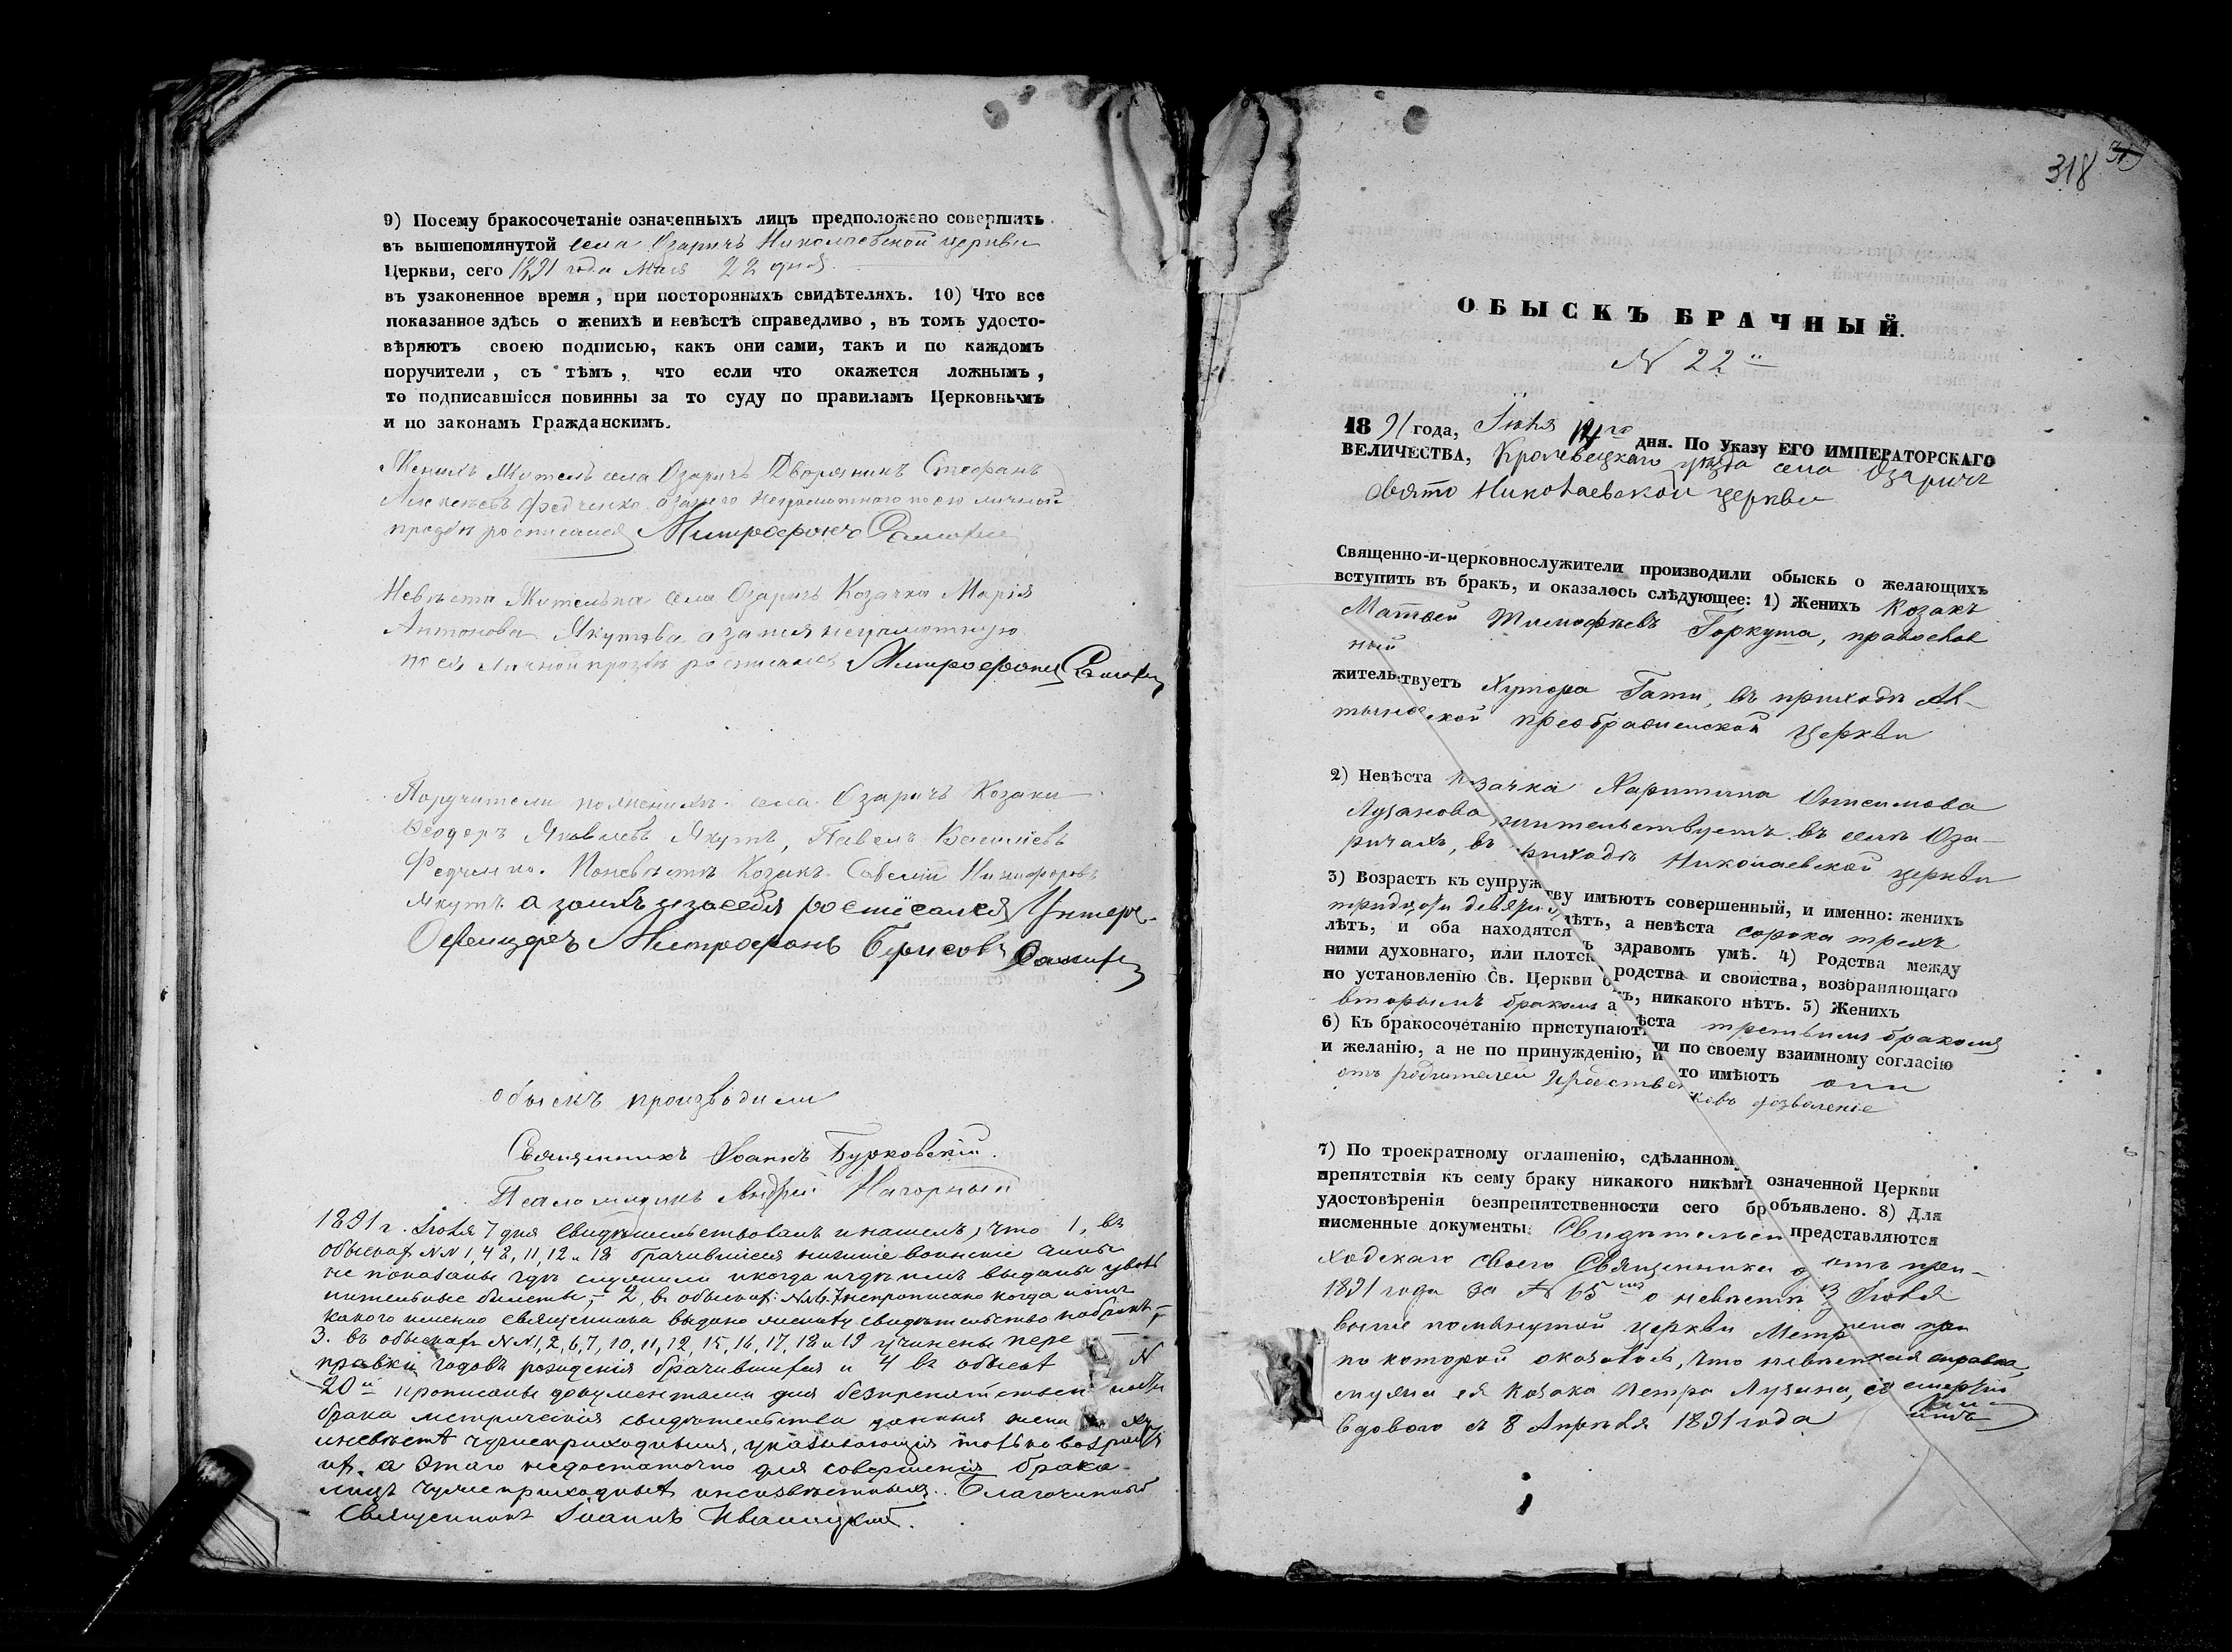 9) Посему бракосочетаніе означенныхъ лицъ предположено совершить
въ вышепомянутой села Озаричъ Николаевской церкви
Церкви, сего 1891 года Мая 22 дня
въ узаконенное время, при постороннихъ свидѣтеляхъ. 10) Что все
показанное здѣсь о женихѣ и невѣстѣ справедливо, въ томъ удосто-
вѣряютъ своею подписью, какъ они сами, такъ и по каждомъ
поручители, съ тѣмъ, что если что окажется ложнымъ,
то подписавшіеся повинны за то суду по правиламъ Церковнымъ
и по законамъ Гражданскимъ.
Женихъ Житель села Озаричъ Дворянинъ Стефанъ
Федченко а за него неграмотнаго по его личной
прозбѣ росписался Митрофанъ
Невѣста Жителька села Озаричъ Козачка Марія
Антонова Якутова а за нея неграмотную
по ея личной прозбѣ росписался Митрофанъ
Поручители по женихѣ села Озаричъ Козаки
Феодоръ Яковлевъ Якутъ, Павелъ Василіевъ
Федченко. По невѣстѣ Козакъ Савелій Никифоровъ
Якутъ а за ихъ и за себя росписался Унтеръ-
Офицеръ Митрофанъ Борисовъ
Обыскъ производили
Священникъ Іоаннъ Бурковскій.
Псаломщикъ Андрей Нагорный
1891 г. Іюня 7 дня свидѣтельствовалъ и нашелъ, что 1, въ
обыскахъ NN 1, 4, 8, 11, 12 и 18 брачившіеся нижніе воинскіе чины
не показаны гдѣ служили и когда и гдѣ имъ выданы уволь
нительные билеты, – 2, въ обыскахъ не прописано когда и отъ
какого именно священника выдано жениху свидѣтельство на бракъ, –
3. въ обыскахъ NN 1, 2, 6, 7, 10, 11, 12, 15, 16, 17, 18 и 19 учинены пере
правки годовъ рожденія брачившихся и 4 въ обыскѣ N
20й прописаны документами для безпрепятствен ности
брака метрическія свидѣтельства данныя жениху
и невѣстѣ чужеприходнымъ, указывающія только возрастъ
ихъ, а этого недостаточно для совершенія брака
лицъ чужеприходныхъ и неизвѣстныхъ. Благочинный
Священникъ Іоаннъ Иваницкій.
318
ОБЫСКЪ БРАЧНЫЙ.
N 22й
1891 года, Іюня 14го дня. По Указу ЕГО ИМПЕРАТОРСКАГО
ВЕЛИЧЕСТВА, Кролевецкаго уѣзда села Озаричъ
Свято Николаевской церкви
Священно-и-церковнослужители производили обыскъ о желающихъ
вступить въ бракъ, и оказалось слѣдующее: 1) Женихъ Козакъ
Матвей Тимофѣевъ Горкуша, православ
ный
жительствуетъ Хутора Гати, въ приходѣ Ал-
тыновской преображенской церкви
2) Невѣста козачка Харитина Онисимова
Лузанова, жительствуетъ въ селѣ Оза-
ричахъ, въ приходѣ Николаевской церкви
3) Возрастъ къ супружеству имѣютъ совершенный, и именно: женихъ
тридцати девяти лѣтъ, а невѣста сорока трехъ
лѣтъ, и оба находятся въ здравомъ умѣ. 4) Родства между
ними духовнаго, или плотск родства и свойства, возбраняющаго
по установленію Св. Церкви никакого нѣтъ. 5) Женихъ
вторымъ бракомъ а невѣста третьимъ бракомъ
6) Къ бракосочетанію приступаютъ они по своему взаимному согласію
и желанію, а не по принужденію, и то имѣютъ они
отъ родителей и родственниковъ дозволеніе
7) По троекратному оглашенію, сдѣланному означенной Церкви
препятствія къ сему браку никакого никѣмъ объявлено. 8) Для
удостовѣренія безпрепятственности сего бр представляются
письменные документы: Свидѣтельство отъ при-
ходскаго своего Священника 3 Іюня
1891 года за N 65мъ о невѣстѣ при
выше помянутой церкви Метрическая справка
по которой оказалось, что невѣста со смертію
мужа ея козака Петра Лузана,
вдовою съ 8 Апрѣля 1891 года